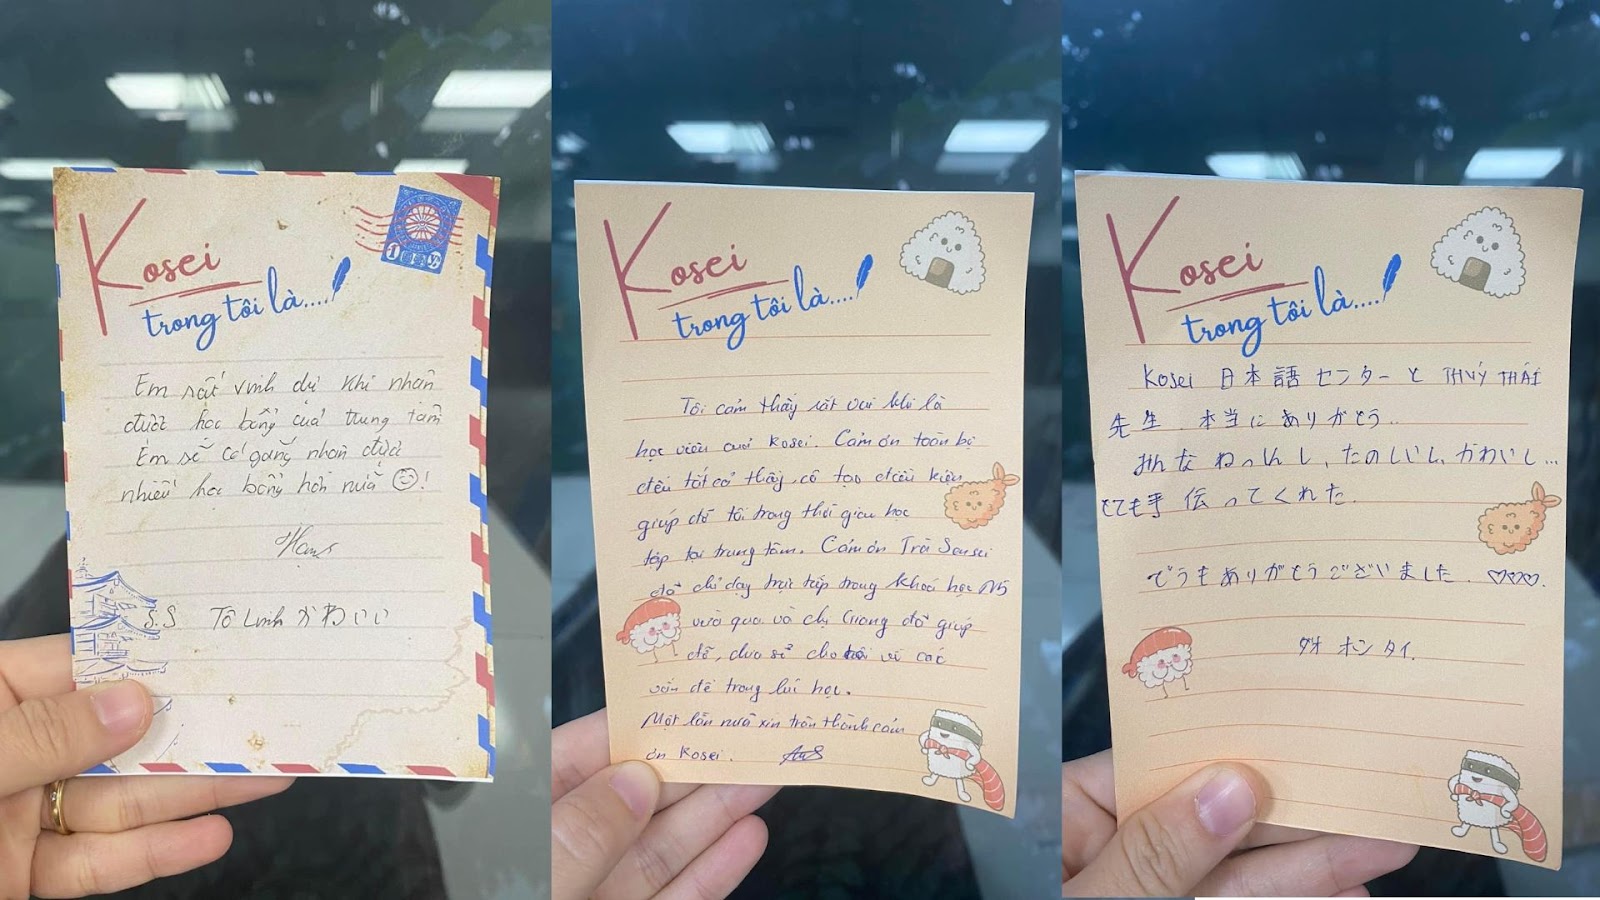 Kosei
trong tôi là....!
Em rất vinh dự khi nhận
được học bổng của trung tâm
Em sẽ cố gắng nhận được
nhiều học bổng hơn nữa !
S.S Tô Linh かわいい
Kosei
trong tôi là....!
Tôi cảm thấy rất vui khi là
học viên của Kosei. Cảm ơn toàn bộ
đến tất cả thầy, cô tạo điều kiện
giúp đỡ tôi trong thời gian học
tập tại trung tâm. Cảm ơn Trà Sensei
đã chỉ dạy trực tiếp trong khoá học N5
vừa qua và chị Giang đã giúp
đỡ, chia sẻ cho tôi về các
vấn đề trong lúc học.
Một lần nữa xin trân thành cảm
ơn Kosei.
Kosei
trong tôi là....!
Kosei 日本語センターと THUÝ THÁI
先生. 本当にありがとう..
みんなねっしんし、たのしいし、かわいし...
とても手伝ってくれた.
どうもありがとうございました. ♡♡♡.
ホン タイ.